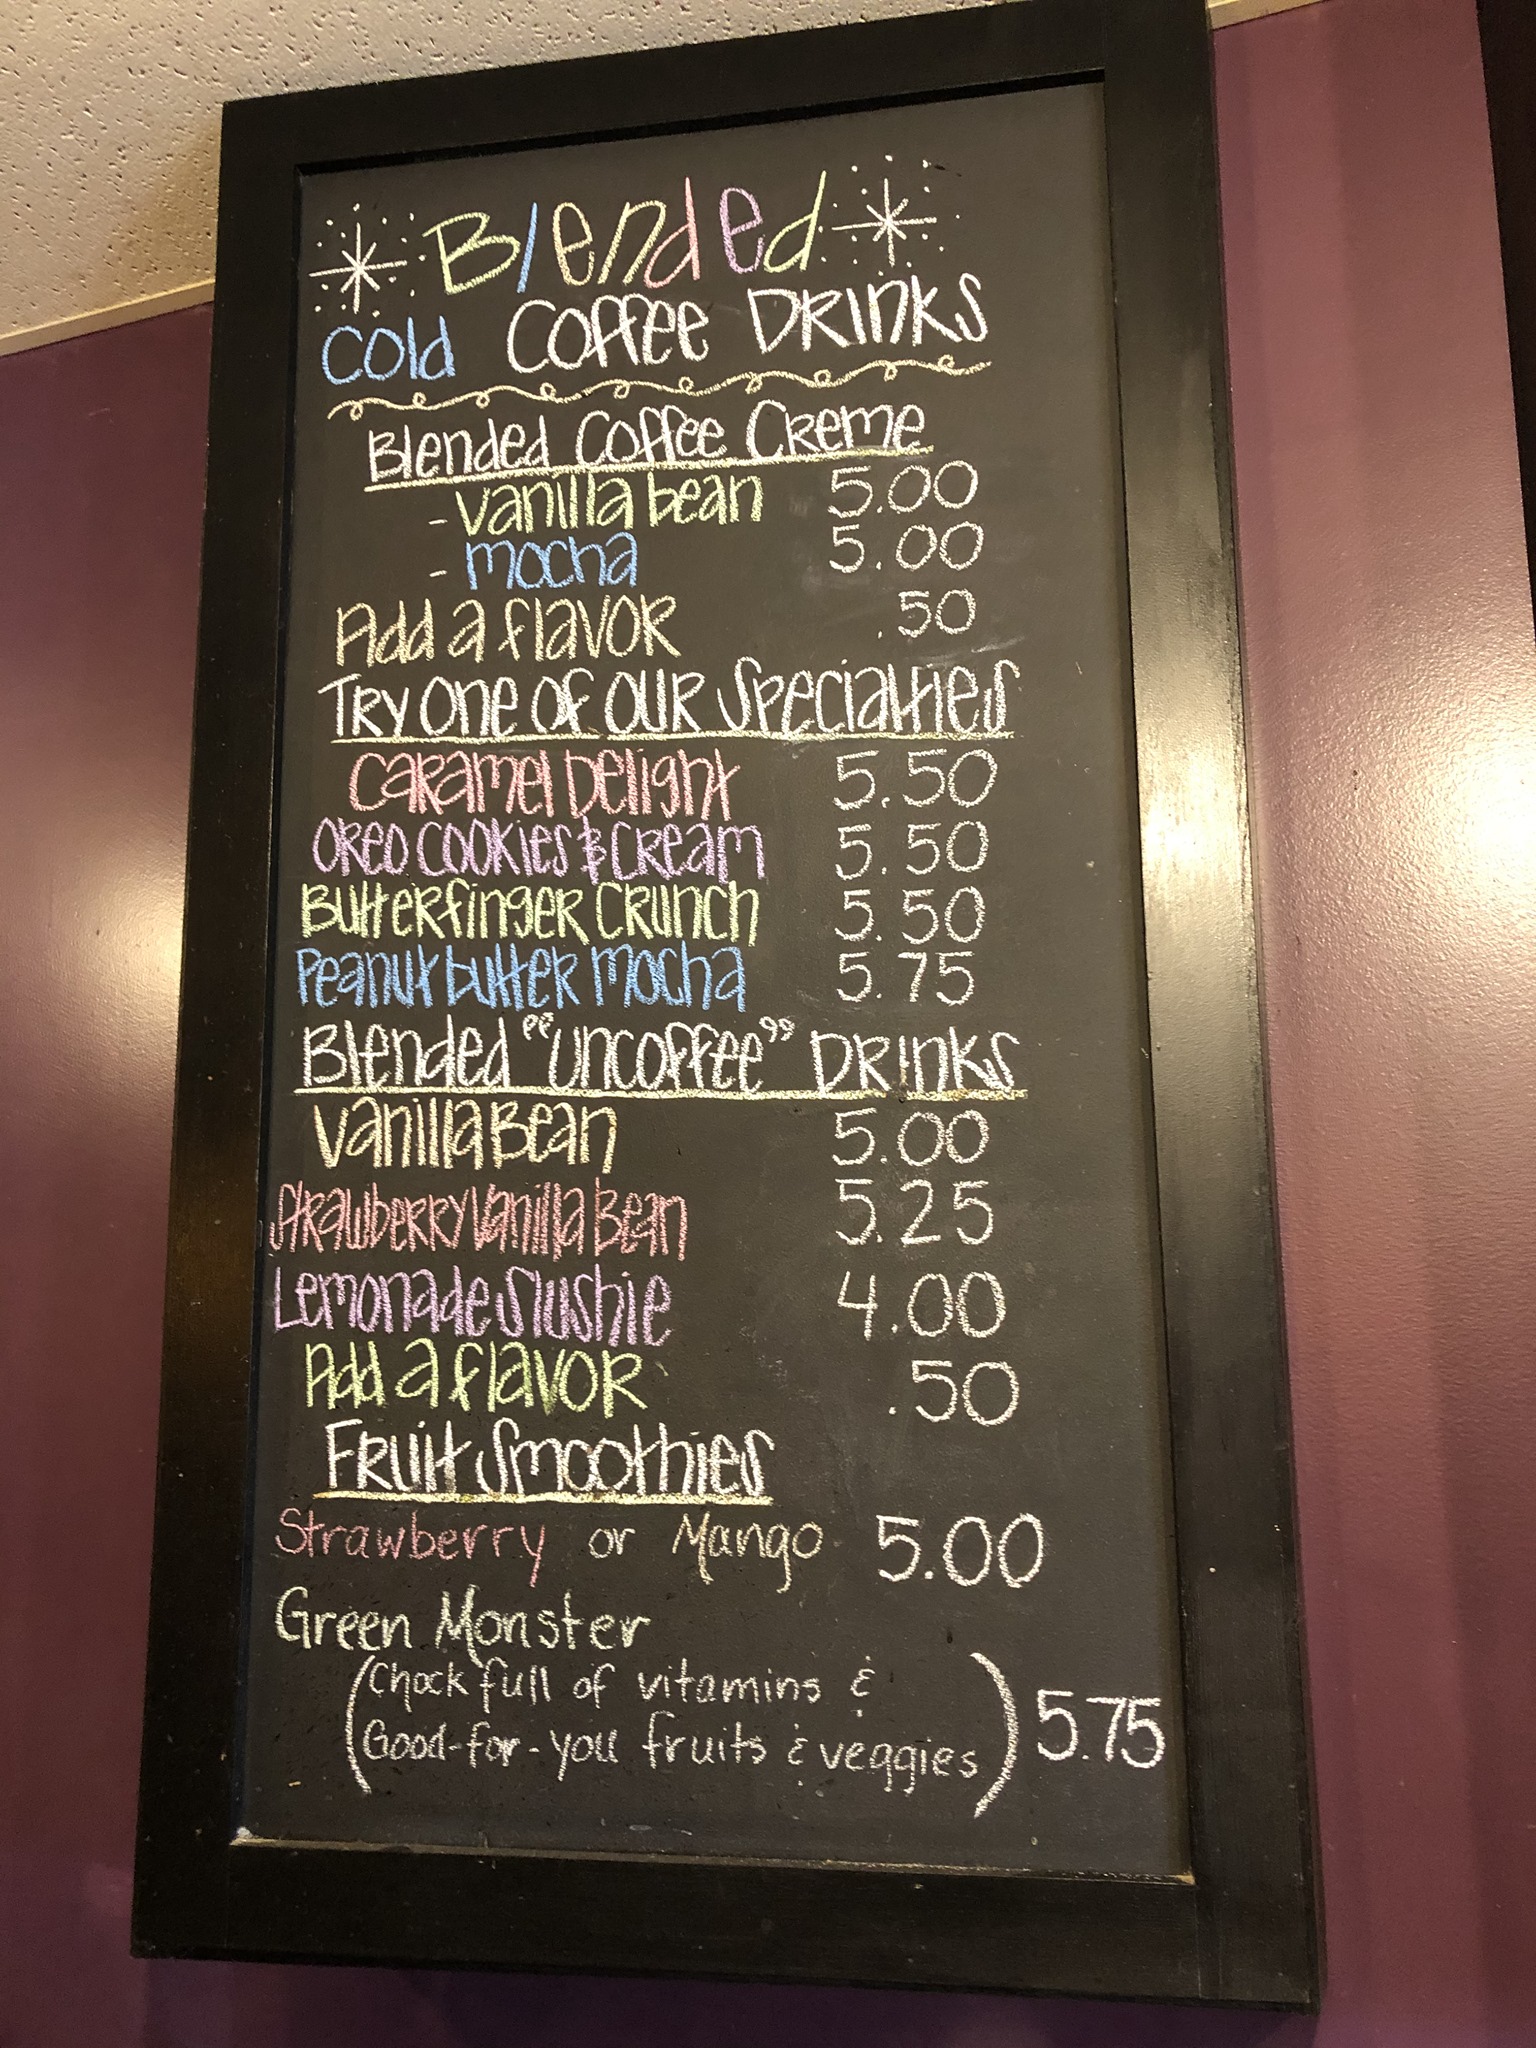 Blended
Cold Coffee Drinks
Blended Coffee Creme
- Vanilla bean 5.00
- mocha 5.00
Add a flavor .50
Try one of our Specialties
Caramel Delight 5.50
Oreo Cookies & Cream 5.50
Butterfinger Crunch 5.50
Peanut butter mocha 5.75
Blended "uncoffee" Drinks
Vanilla Bean 5.00
Strawberry Vanilla Bean 5.25
Lemonade Slushie 4.00
Add a flavor .50
Fruit Smoothies
Strawberry or Mango 5.00
Green Monster
(Chock full of vitamins &
Good-for-you fruits & veggies) 5.75